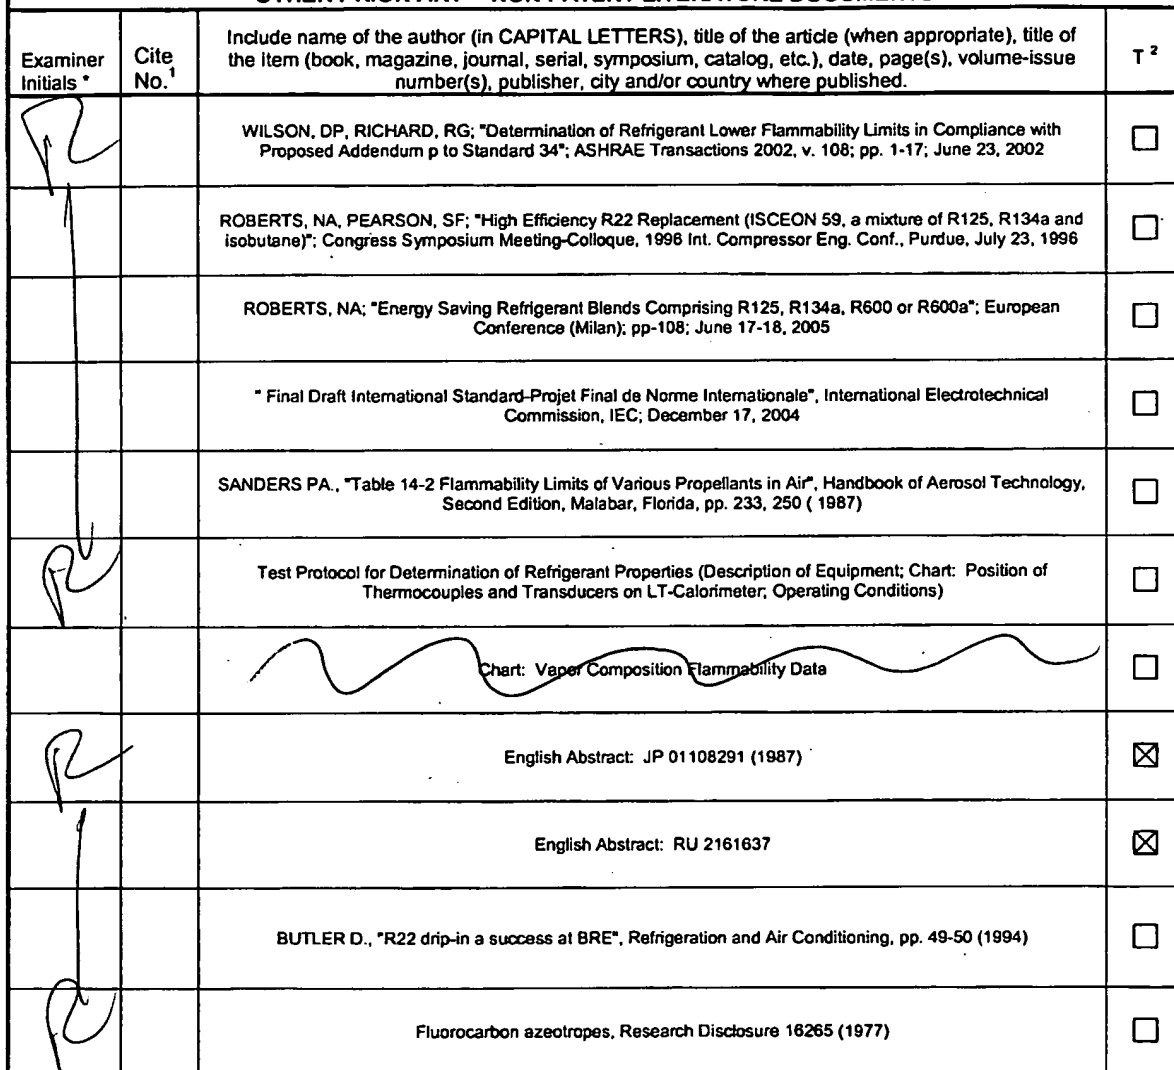 Examiner
Initials *
Cite
No.¹
Include name of the author (in CAPITAL LETTERS), title of the article (when appropriate), title of
the item (book, magazine, journal, serial, symposium, catalog, etc.), date, page(s), volume-issue
number(s), publisher, city and/or country where published.
T ²
WILSON, DP, RICHARD, RG; "Determination of Refrigerant Lower Flammability Limits in Compliance with
Proposed Addendum p to Standard 34"; ASHRAE Transactions 2002, v. 108; pp. 1-17; June 23, 2002
ROBERTS, NA, PEARSON, SF; "High Efficiency R22 Replacement (ISCEON 59, a mixture of R125, R134a and
isobutane)"; Congress Symposium Meeting-Colloque, 1996 Int. Compressor Eng. Conf., Purdue, July 23, 1996
ROBERTS, NA; "Energy Saving Refrigerant Blends Comprising R125, R134a, R600 or R600a"; European
Conference (Milan); pp-108; June 17-18, 2005
" Final Draft International Standard-Projet Final de Norme Internationale", International Electrotechnical
Commission, IEC; December 17, 2004
SANDERS PA., "Table 14-2 Flammability Limits of Various Propellants in Air", Handbook of Aerosol Technology,
Second Edition, Malabar, Florida, pp. 233, 250 ( 1987)
Test Protocol for Determination of Refrigerant Properties (Description of Equipment; Chart: Position of
Thermocouples and Transducers on LT-Calorimeter; Operating Conditions)
Chart: Vaper Composition Flammability Data
English Abstract: JP 01108291 (1987)
English Abstract: RU 2161637
BUTLER D., "R22 drip-in a success at BRE", Refrigeration and Air Conditioning, pp. 49-50 (1994)
Fluorocarbon azeotropes, Research Disclosure 16265 (1977)